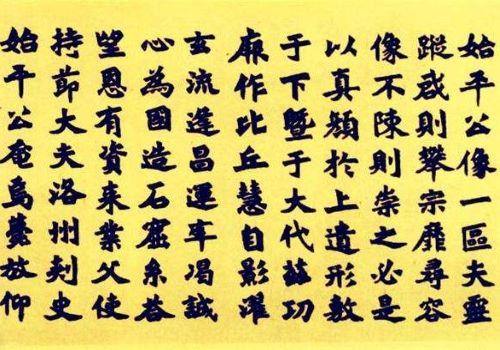 始平公像一區夫靈
蹤惑則攀宗靡尋容
像不陳則崇之必是
以真顏於上遺形敷
于下暨于大代茲功
厥作比丘慧自影濯
玄流逢昌運率竭誠
心為國造石窟系荅
望恩有資來業父使
持節大夫洛州刾史
始平公奄焉薨放仰